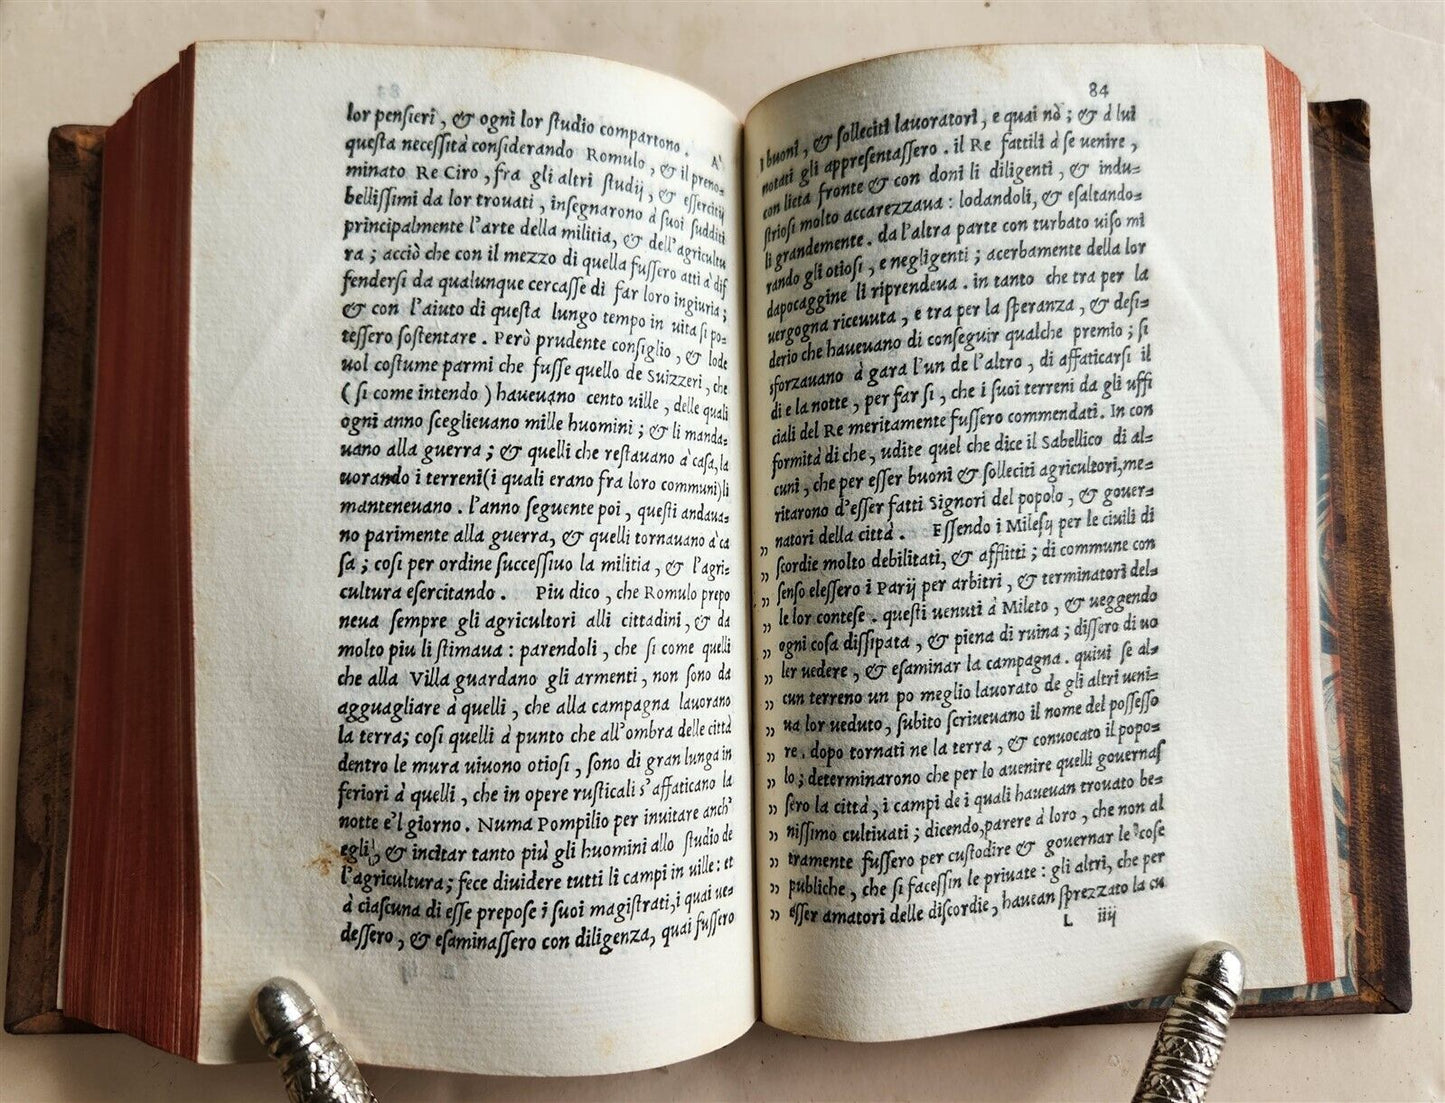 lor pensieri, & ogni lor studio compartono. A'
questa necessità considerando Romulo, & il preno-
minato Re Ciro, fra gli altri studij, & essercitij
bellissimi da lor trouati, insegnarono à suoi sudditi
principalmente l'arte della militia, & dell'agricultu
ra; acciò che con il mezzo di quella fussero atti à dif
fendersi da qualunque cercasse di far loro ingiuria;
& con l'aiuto di questa lungo tempo in uita si po-
tessero sostentare. Però prudente consiglio, & lode
uol costume parmi che fusse quello de Suizzeri, che
(si come intendo) haueuano cento uille, delle quali
ogni anno sceglieuano mille huomini; & li manda-
uano alla guerra; & quelli che restauano à casa, la
uorando i terreni (i quali erano fra loro communi) li
manteneuano. l'anno seguente poi, questi andaua-
no parimente alla guerra, & quelli tornauano à ca
sa; cosi per ordine successiuo la militia, & l'agri-
cultura esercitando. Piu dico, che Romulo prepo
neua sempre gli agricultori alli cittadini, & da
molto piu li stimaua: parendoli, che si come quelli
che alla Villa guardano gli armenti, non sono da
agguagliare à quelli, che alla campagna lauorano
la terra; cosi quelli à punto che all'ombra delle città
dentro le mura uiuono otiosi, sono di gran lunga in
feriori à quelli, che in opere rusticali s'affaticano la
notte e'l giorno. Numa Pompilio per inuitare anch'
egli, & incitar tanto più gli huomini allo studio de
l'agricultura; fece diuidere tutti li campi in uille: et
à ciascuna di esse prepose i suoi magistrati, i quai ue-
dessero, & esaminassero con diligenza, quai fussero
84
i buoni, & solleciti lauoratori, e quai nò; & à lui
notati gli appresentassero. il Re fattili à se uenire,
con lieta fronte & con doni li diligenti, & indu-
striosi molto accarezzaua: lodandoli, & esaltando-
li grandemente. da l'altra parte con turbato uiso mi
rando gli otiosi, e negligenti; acerbamente della lor
dapocaggine li riprendeua. in tanto che tra per la
uergogna riceuuta, e tra per la speranza, & desi-
derio che haueuano di conseguir qualche premio; si
sforzauano à gara l'un de l'altro, di affaticarsi il
di e la notte, per far si, che i suoi terreni da gli uffi
ciali del Re meritamente fussero commendati. In con
formità di che, udite quel che dice il Sabellico di al-
cuni, che per esser buoni & solleciti agricultori, me-
ritarono d'esser fatti Signori del popolo, & gouer-
natori della città. Essendo i Milesij per le ciuili di
„ scordie molto debilitati, & afflitti; di commune con
„ senso elessero i Parij per arbitri, & terminatori del-
„ le lor contese. questi uenuti à Mileto, & ueggendo
„ ogni cosa dissipata, & piena di ruina; dissero di uo
„ ler uedere, & esaminar la campagna. quiui se al-
„ cun terreno un po meglio lauorato de gli altri ueni-
„ ua lor ueduto, subito scriueuano il nome del possesso
„ re. dopo tornati ne la terra, & conuocato il popo-
„ lo; determinarono che per lo auenire quelli gouernas
„ sero la città, i campi de i quali haueuan trouato be-
„ nissimo cultiuati; dicendo, parere à loro, che non al
„ tramente fussero per custodire & gouernar le cose
„ publiche, che si facessin le priuate: gli altri, che per
„ esser amatori delle discordie, hauean sprezzato la cu
L iiij